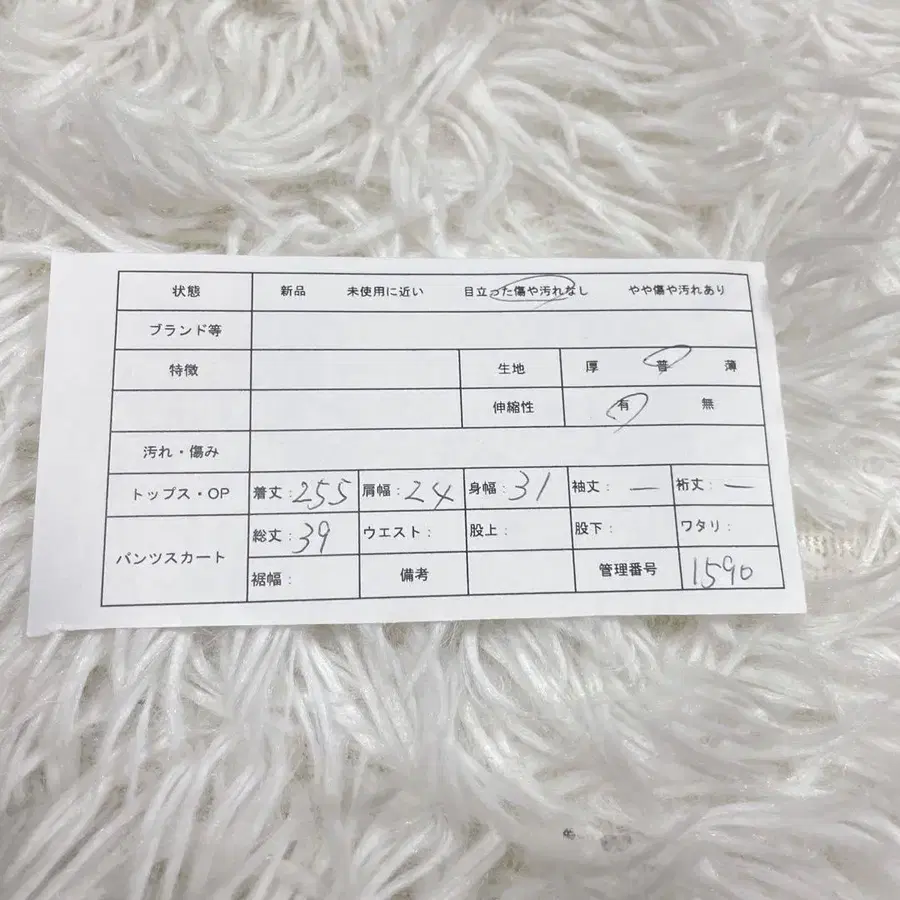 状態 新品 未使用に近い 目立った傷や汚れなし やや傷や汚れあり
ブランド等
特徴 生地 厚 普 薄
伸縮性 有 無
汚れ・傷み
トップス・OP 着丈:255 肩幅:24 身幅:31 袖丈:— 裄丈:—
パンツスカート 総丈:39 ウエスト: 股上: 股下: ワタリ:
裾幅: 備考 管理番号 1590